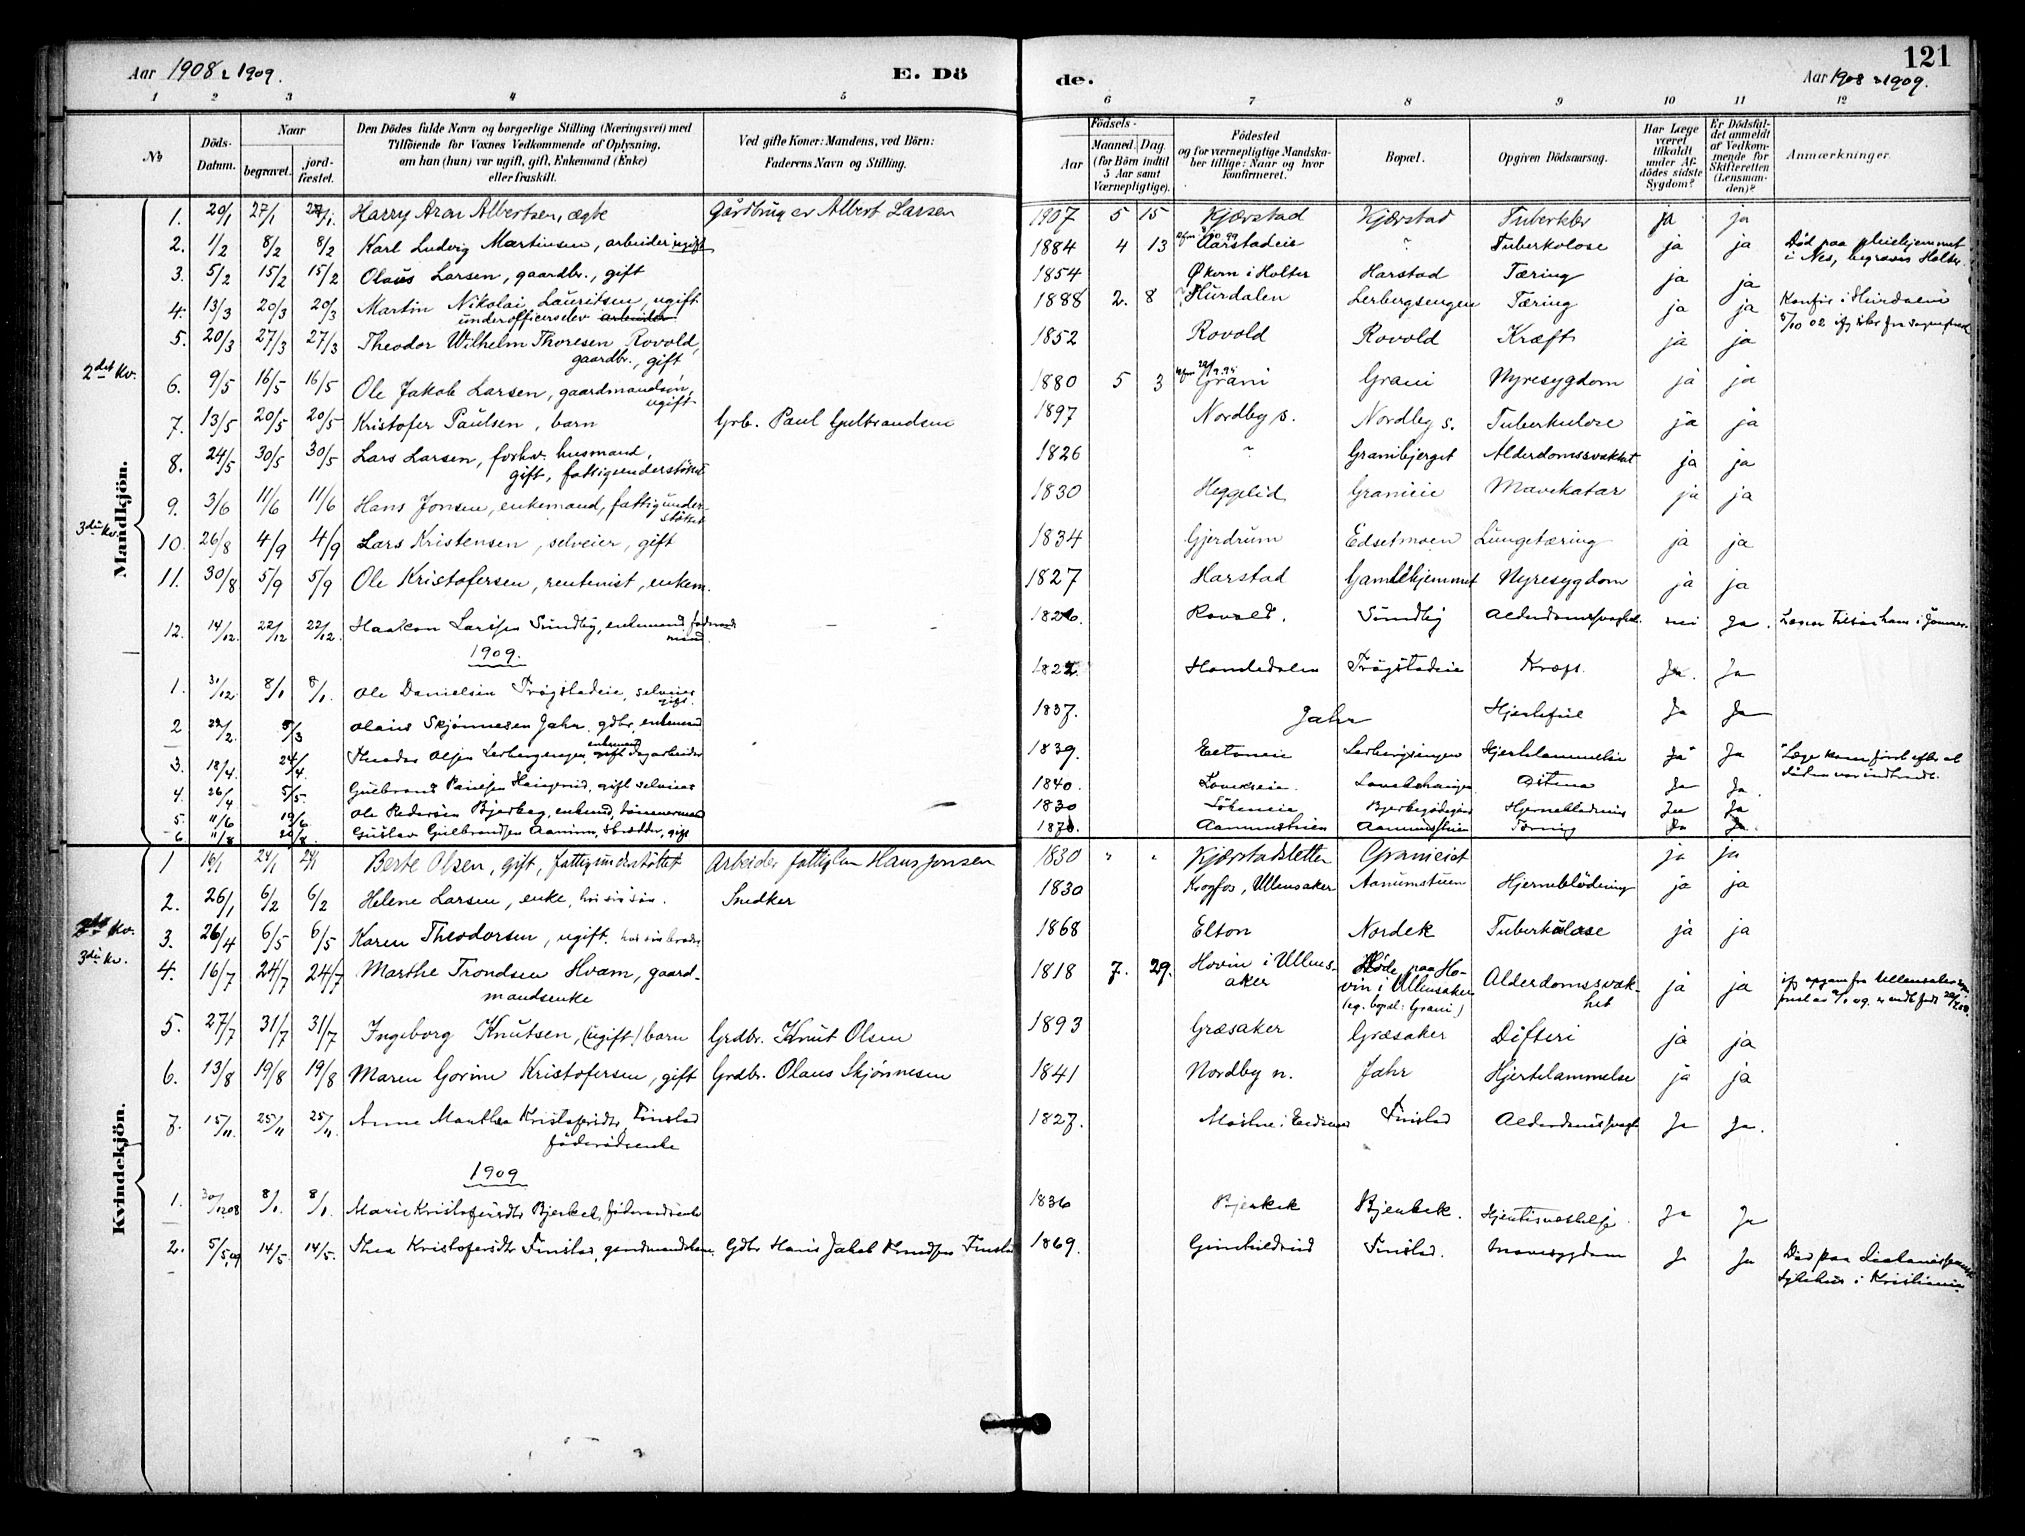 Aar 1908 & 1909.
E. Dö
de.
121
Aar 1908 & 1909.
1 2 3 4 5 6 7 8 9 10 11 12
No
Döds-Datum.
Naar
begravet.
jord-fæstet.
Den Dödes fulde Navn og borgerlige Stilling (Næringsvei) med
Tilföiende for Voxnes Vedkommende af Oplysning,
om han (hun) var ugift, gift, Enkemand (Enke)
eller fraskilt.
Ved gifte Koner: Mandens, ved Börn:
Faderens Navn og Stilling.
Födsels-
Aar
Maaned. Dag.
(for Börn indtil
5 Aar samt
Værnepligtige).
Födested
og for værnepligtige Mandska-
ber tillige: Naar og hvor
Konfirmeret.
Bopæl.
Opgiven Dödsaarsag.
Har Læge
været
tilkaldt
under Af-
dödes sidste
Sygdom?
Er Dödsfal-
det anmeldt
af Vedkom-
mende for
Skifteretten
(Lensman-
den)?
Anmærkninger.
Mandkjön.
2det Kv.
3die Kv.
1. 20/1 27/1 27/1. Harry Aron Albertsen, ægte Gårdbruger Albert Larsen 1907 5 15 Kjærstad Kjærstad Tuberkler ja ja
2. 1/2 8/2 8/2 Karl Ludvig Martinsen, arbeider ugift 1884 4 13 Aarstadeie " Tuberkulose ja ja Död paa pleiehjemmet
i Nes, begravet Holter.
3. 5/2 15/2 15/2 Olaus Larsen, gaardbr., gift 1854 Økern i Holter Harstad Tæring ja ja
4. 13/3 20/3 20/3 Martin Nikolai Lauritsen, ugift 1888 2. 8 Hurdalen Lerbergsengen Tæring ja ja Konfir. i Hurdalen
underofficerselev arbeider 5/10 02
5. 20/3 27/3 27/3 Theodor Wilhelm Thoresen Rovold, 1852 Rovold Rovold Kræft ja ja
gaardbr., gift
6. 9/5 16/5 16/5 Ole Jakob Larsen, gaardmandsøn, 1880 5 3 Grani Grani Nyresygdom ja ja
ugift
7. 13/5 20/5 20/5 Kristofer Paulsen, barn Grb. Paul Gulbrandsen 1897 Nordby s. Nordby s. Tuberkulose ja ja
8. 24/5 30/5 30/5 Lars Larsen, forhv. husmand, 1826 " Granibjerget Alderdomssvakhet ja ja
gift, fattigunderstøttet
9. 3/6 11/6 11/6 Hans Jonsen, enkemand, fattigunder- 1830 Heggelid Granieie Mavekatar ja ja
støttet
10. 26/8 4/9 4/9 Lars Kristensen, selveier, gift 1834 Gjerdrum Edsetmoen Lungetæring ja ja
11. 30/8 5/9 5/9 Ole Kristofersen, rentenist, enkem. 1827 Harstad Gamlehjemmet Nyresygdom ja ja
12. 14/12. 22/12 22/12. Haakon Larssen Sundby, enkemand föderaads- 1826. Rovold. Sundby Alderdomssvaghed nei Ja.
mand.
1909.
1. 31/12. 8/1 8/1. Ole Danielsen Trøgstadeie, selveier 1822. Trögstadeie Kræft. Ja. Ja
gift.
2 22/2. 5/3 Olaus Skjönnesen Jahr, gdbr., enkemand 1837. Jahr Hjertefeil Ja Ja
3. 18/4. 24/4. Theodor Olsen Lerbergsengen, enkemand gift Dagarbeider 1839. Eltoneie Lerbergsengen Hjertelammelse Ja Ja Læge kom först efter at
döden var indtraadt.
4. 26/4 5/5. Gulbrand gift selveier 1840. Ja Ja.
5. 11/6 19/6. Ole Pedersen Bjerkeg, enkemd, tömmermand 1830 Hjerneblødning Ja Ja
6 11/8 20/8. Gustav Gulbrandsen Aanum, gift 1870. Aanumstuen Aanumstuen Tæring Ja Ja.
Kvindekjön.
2det Kv.
3die Kv.
1 16/1 24/1 24/1 Berte Olsen, gift, fattigunderstöttet Arbeider fattiglem Hans Jonsen 1830 " " Kjærstadsletten Granieiet ja ja
2. 26/1 6/2 6/2 Helene Larsen, enke, hos sin søn. Snedker 1830 Krogfos, Ullensaker Aanumstuen Hjerneblödning ja ja
3. 26/4 6/5 6/5 Karen Theodorsen, ugift. hos sin broder 1868 Elton Nordek Tuberkulose ja ja
4. 16/7 24/7 24/7 Marthe Trondsen Hvam, gaard- 1818 7. 29. Hovin i Ullens- Döde paa Ho- Alderdomssvak- ja ja
mandsenke aker vin i Ullensaker het
(eg. bopæl: Grani)
5. 27/7 31/7 31/7 Ingeborg Knutsen, (ugift) barn Grdbr. Knut Olsen 1893 Græsaker Græsaker Difteri ja ja
6. 13/8 19/8 19/8 Maren Gorine Kristofersen, gift Grdbr. Olaus Skjönnesen 1841 Nordby n. Jahr Hjertelammelse ja ja
7. 15/11. 25/11 25/11. Anne Marthea Kristofersdtr. Finstad 1827. Finstad Alderdomssvaghed Ja Ja.
föderådsenke
1909
1. 30/12 08 8/1. 8/1. Marie Kristofersdtr Bjerkek, föderaadsenke 1836 Bjerkek Bjerkek. Ja Ja
2. 5/5 09 14/5. 14/5. Thea Kristofersdtr Finstad, gaardmandskone. Gdbr Hans Jakob Knudsen Finstad 1869. Gunhildrud Finstad. Mavesygdom Ja Ja Död paa Diakonissernes
Sykehus i Kristiania.